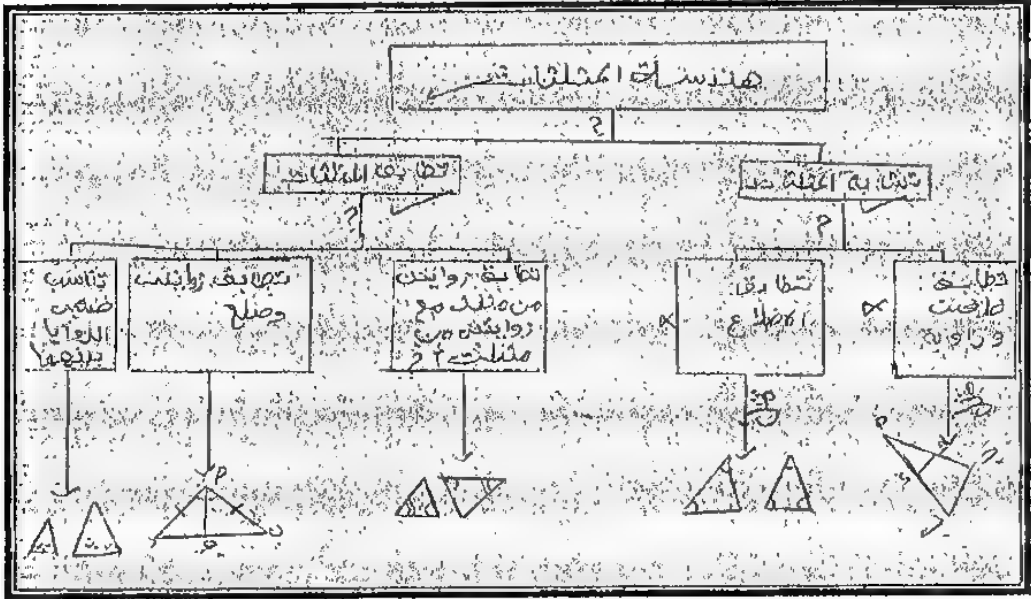 هندسة المثلثات
؟
تشابه المثلثات
تطابق المثلثات
؟
؟
تطابق
وزاوية
تطابق
الاضلاع
تطابق زوايتين
من مثلث مع
زوايتين من
مثلث آخر
تطابق زوايتين
وضلع
تناسب
ضلعي
بينهما
مثال
مثال